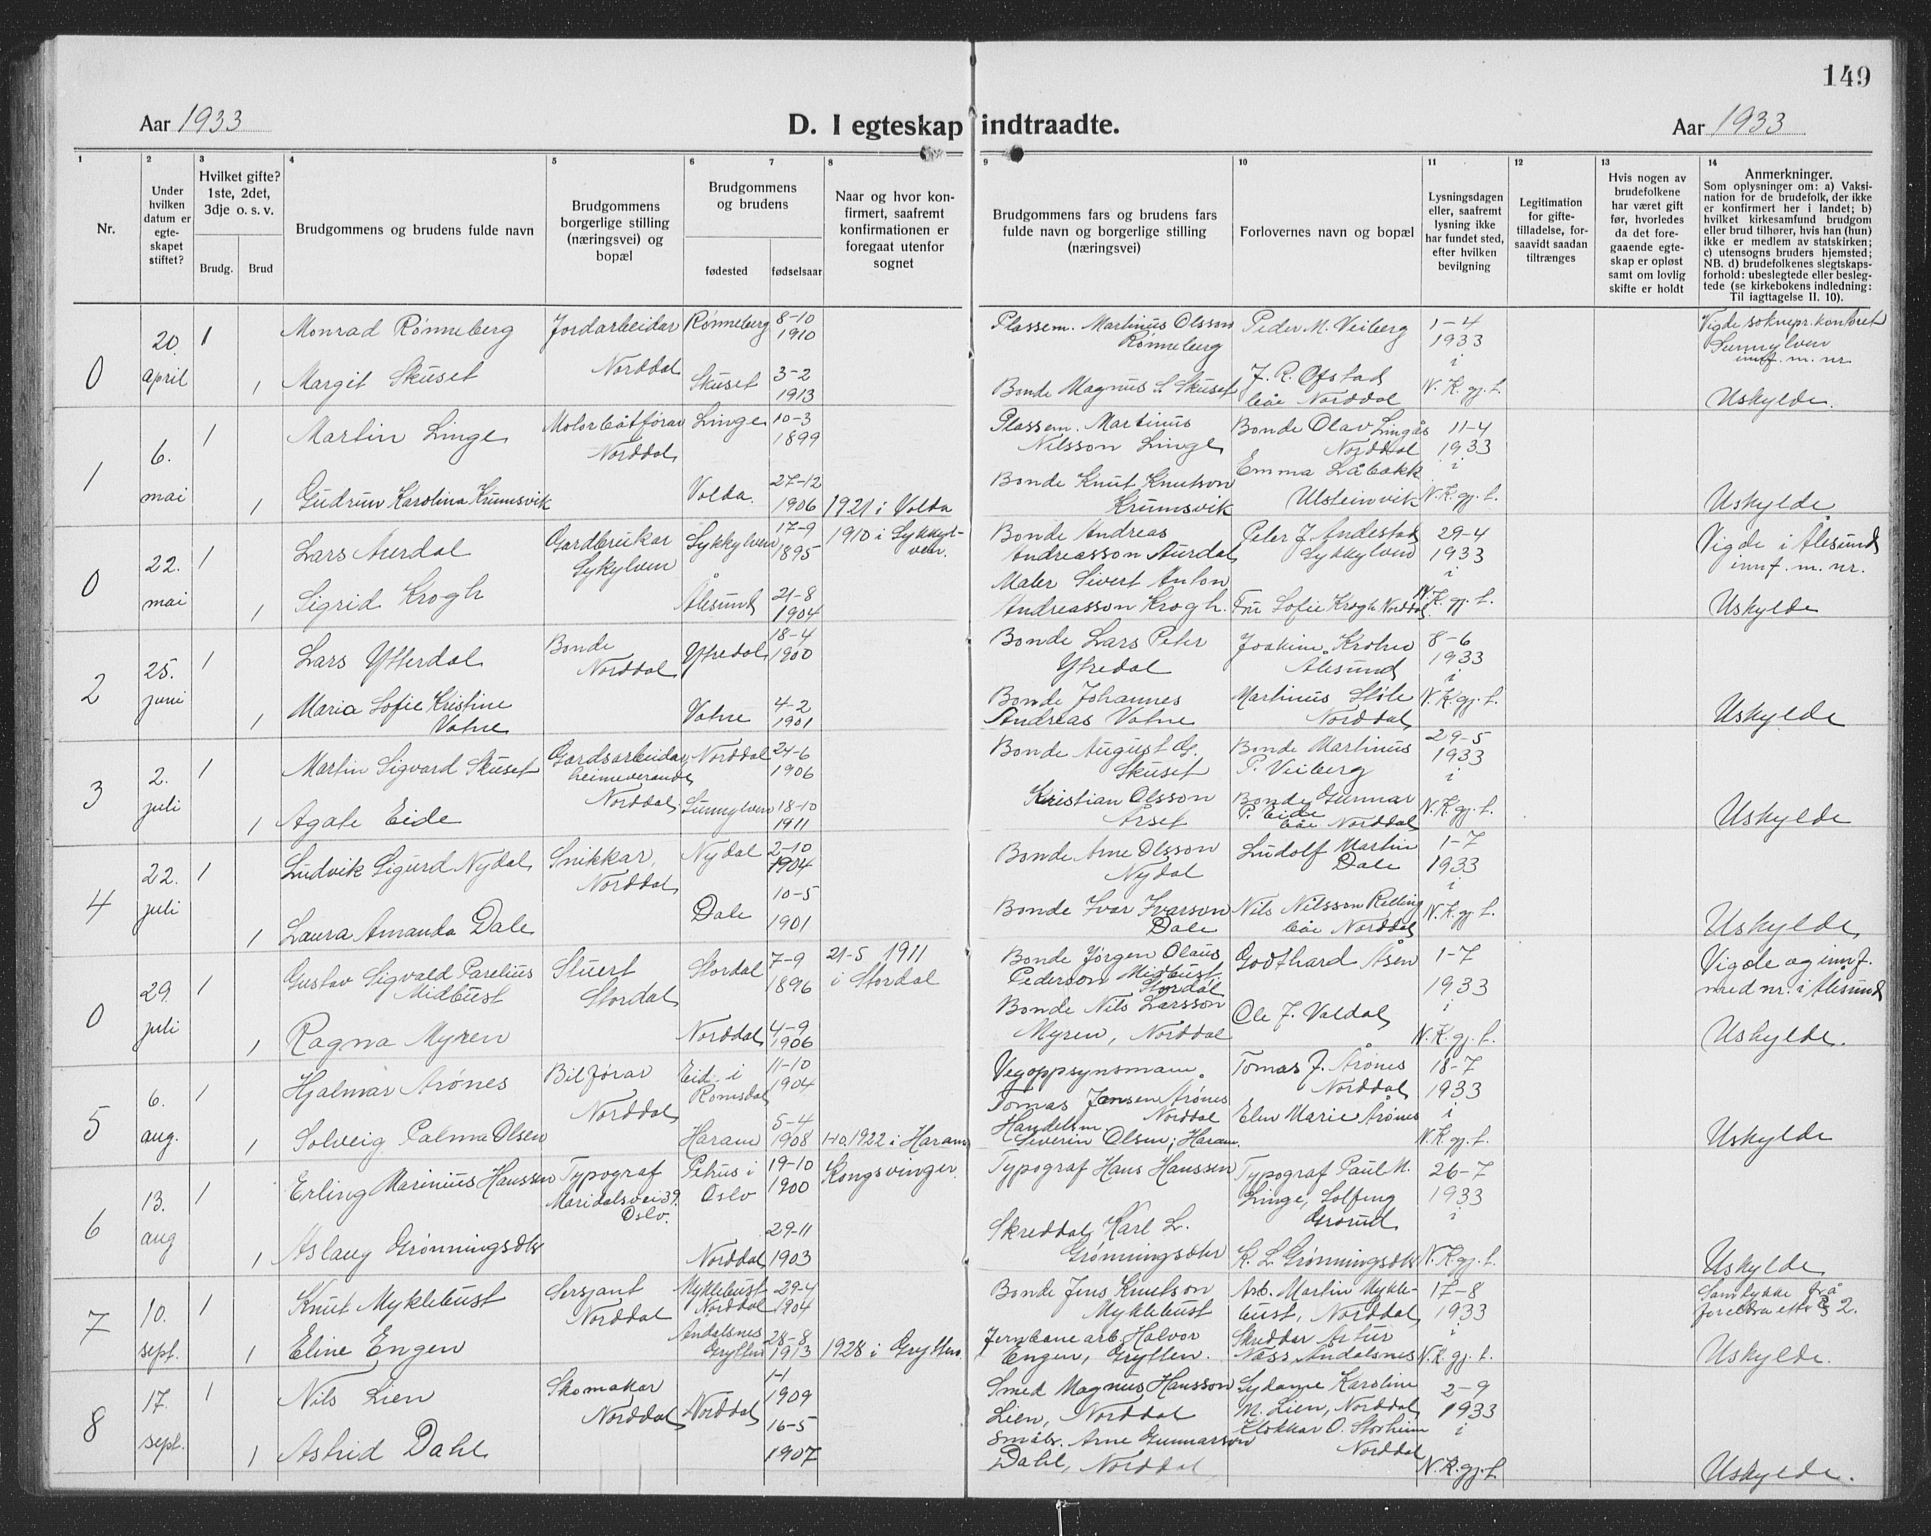 149
Aar 1933
D. I egteskap indtraadte.
Aar 1933
1 2 3 4 5 6 7 8 9 10 11 12 13 14
Nr.
Under hvilken datum er egteskapet stiftet?
Hvilket gifte? 1ste, 2det, 3dje o. s. v.
Brudg. Brud
Brudgommens og brudens fulde navn
Brudgommens borgerlige stilling (næringsvei) og bopæl
Brudgommens og brudens
fødested fødselsaar
Naar og hvor konfirmert, saafremt konfirmationen er foregaat utenfor sognet
Brudgommens fars og brudens fars fulde navn og borgerlige stilling (næringsvei)
Forlovernes navn og bopæl
Lysningsdagen eller, saafremt lysning ikke har fundet sted, efter hvilken bevilgning
Legitimation for giftetilladelse, forsaavidt saadan tiltrænges
Hvis nogen av brudefolkene har været gift før, hvorledes da det foregaaende egteskap er opløst samt om lovlig skifte er holdt
Anmerkninger.
Som oplysninger om: a) Vaksination for de brudefolk, der ikke er konfirmert her i landet; b) hvilket kirkesamfund brudgom eller brud tilhører, hvis han (hun) ikke er medlem av statskirken; c) utensogns bruders hjemsted; NB. d) brudefolkenes slegtskapsforhold: ubeslegtede eller beslegtede (se kirkebokens indledning: Til iagttagelse II. 10).
0 20. april 1 Monrad Rønneberg Jordarbeidar Norddal Rønneberg 8-10 1910 Plassem. Martinus Olsson Rønneberg Peder M. Veiberg 1-4 1933 i N. K. gj. l. Vigde soknepr. kontoret Sunnylven innf. m. nr
1 Margit Skuset Skuset 3-2 1913 Bonde Magnus S. Skuset J. R. Ofstad båe Norddal Uskylde.
1 6. mai 1 Martin Linge Motorbåtførar Norddal Linge 10-3 1899 Plassem. Martinus Nilsson Linge Bonde Olav Lingås Norddal 11-4 1933 i N. K. gj. l.
1 Gudrun Karolina Krumsvik Volda 27-12 1906 1921 i Volda Bonde Knut Knutson Krumsvik Emma Låbakk Ulsteinvik Uskylde
0 22. mai 1 Lars Aurdal Gardbrukar Sykylven Sykkylven 17-9 1895 1910 i Sykkylven. Bonde Andreas Andreasson Aurdal Peter J. Andestad Sykkylven 29-4 1933 i N. K. gj. l. Vigde i Ålesund innf. m. nr.
1 Sigrid Krogh Ålesund 21-8 1904 Maler Sivert Anton Andreasson Krogh. Fru Sofie Krogh Norddal Uskylde
2 25. juni 1 Lars Ytterdal Bonde Norddal Ytredal 18-4 1900 Bonde Lars Peter Ytredal Joakim Krohn Ålesund 8-6 1933 i N. K. gj. l.
1 Maria Sofie Kristine Vatne Vatne 4-2 1901 Bonde Johannes Andreas Vatne Martinus Støle Norddal Uskylde
3 2. juli 1 Martin Sigvard Skuset Gardsarbeidar, heimeverande Norddal Norddal 24-6 1906 Bonde August G. Skuset Bonde Martinus P. Veiberg 29-5 1933 i N. K. gj. l.
1 Agate Eide Sunnylven 18-10 1911 Kristian Olsson Årset Bonde Gunnar P. Eide båe Norddal Uskylde
4 22. juli 1 Ludvik Sigurd Nydal Snikkar, Norddal Nydal 2-10 1904 Bonde Arne Olsson Nydal Ludolf Martin Dale 1-7 1933 i N. K. gj. l.
1 Laura Amanda Dale Dale 10-5 1901 Bonde Ivar Ivarson Dale Nils Nilsson Relling båe Norddal Uskylde
0 29. juli 1 Gustav Sigvald Parelius Midbust Stuert Stordal Stordal 7-9 1896 21-5 1911 i Stordal Bonde Jørgen Olaus Pederson Midbust. Stordal Godthard Åsen 1-7 1933 i N. K. gj. l. Vigde og innf. med nr. i Ålesund
1 Ragna Myren Norddal 4-9 1906 Bonde Nils Larsson Myren, Norddal Ole J. Valdal Uskylde.
5 6. aug. 1 Hjalmar Arønes Bilførar Norddal Eid i Romsdal 11-10 1904 Vegoppsynsmann. Tomas Jansen Arønes Norddal Tomas J. Årønes Norddal 18-7 1933 i N. K. gj. l.
1 Solveig Palma Olsen Haram 5-4 1908 1922 i Haram Handelsm. Severin Olsen, Haram. Elen Marie Arønes Uskylde
6 13. aug 1 Erling Marinius Hanssen Typograf Maridalsvei 39. Oslo. Petrus i Oslo 19-10 1900 Kongsvinger. Typograf Hans Hanssen Typograf Paul N. Linge, Solfeng Grorud 26-7 1933 i N. K. gj. l.
1 Aslaug Grønningsæter Norddal 29-11 1903 Skreddar Karl L. Grønningsæter K. L. Grønningsæter Uskylde
7 10. sept. 1 Knut Myklebust Sersjant Norddal Myklebust Norddal 29-4 1904 Bonde Jens Knutson Myklebust Arb. Martin Myklebust, Norddal 17-8 1933 i N. K. gj. l. Samtykke frå foreldra etter § 2.
1 Eline Engen Andalsnes Grytten 28-8 1913 1928 i Grytten Jernbanearb. Halvor Engen, Grytten. Skreddar Artur Næss Åndalsnes Uskylde.
8 17. sept. 1 Nils Lien Skomakar Norddal Norddal 1-1 1909 Smed Magnus Hansson Lien, Norddal Lydanne Karoline M. Lien, Norddal 2-9 1933 i N. K. gj. l.
1 Astrid Dahl 16-5 1907 Småbr. Arne Gunnarson Dahl, Norddal Klokkar O. Storheim Norddal Uskylde.